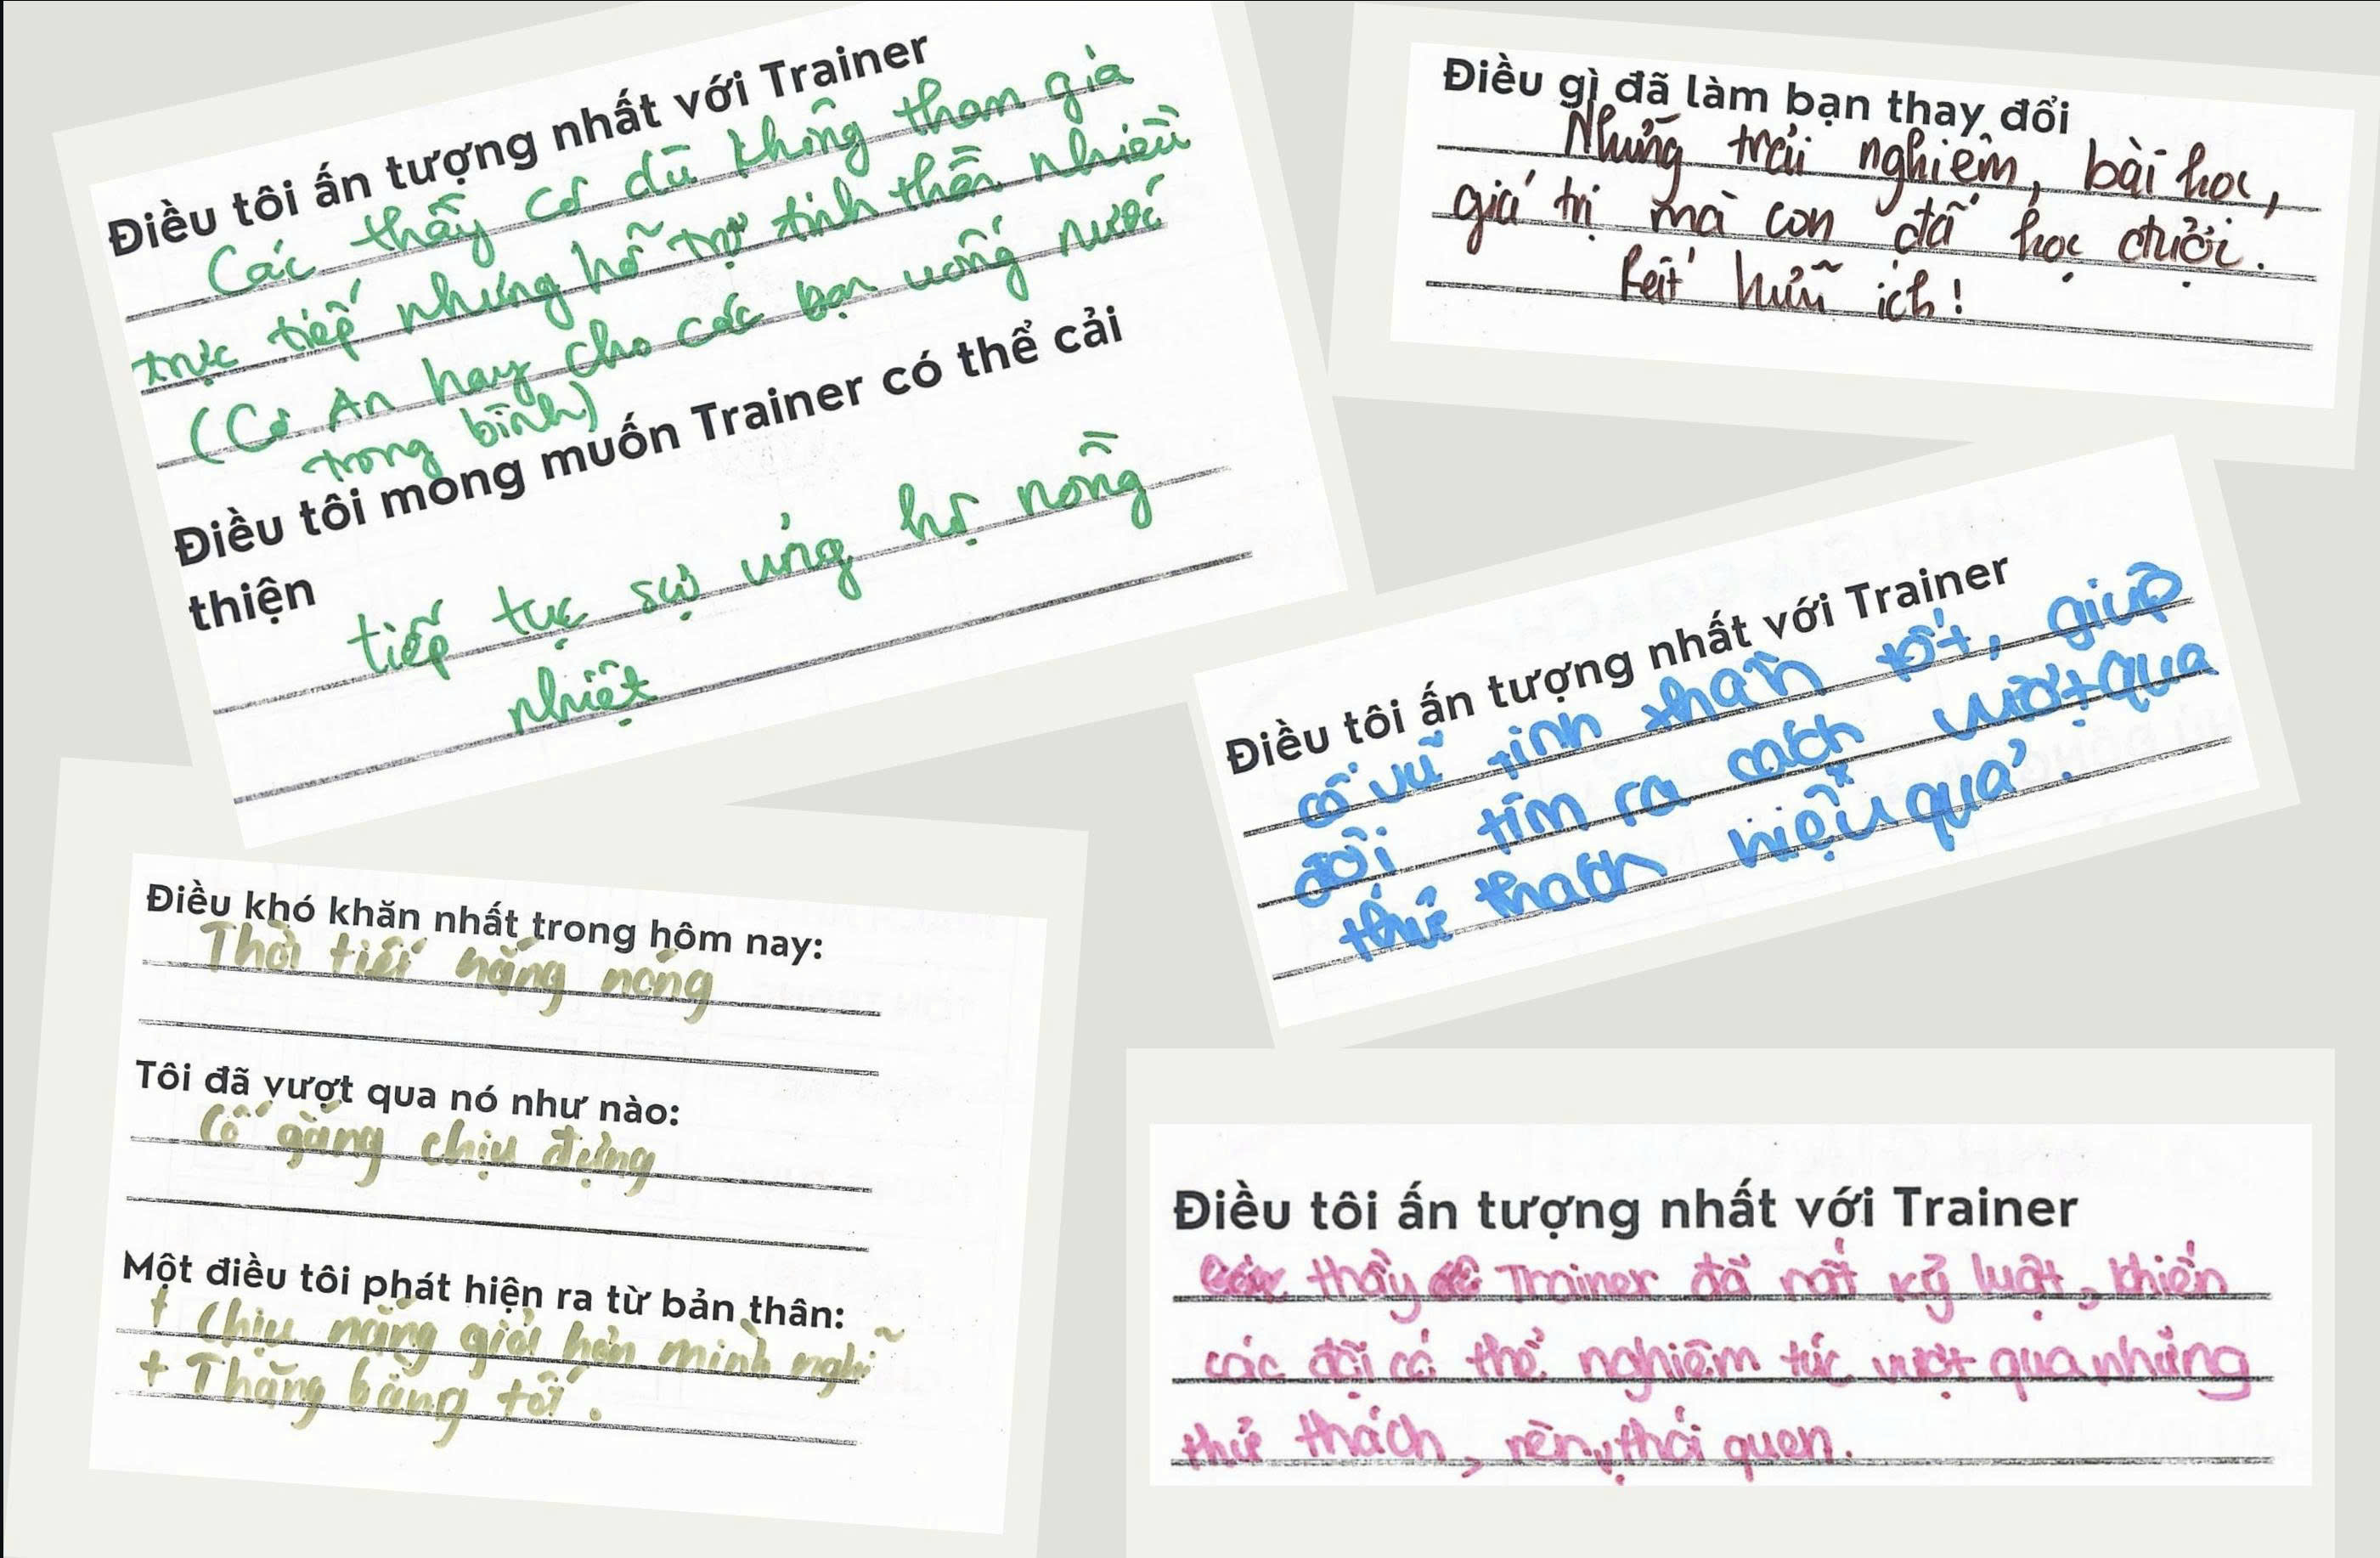 Điều tôi ấn tượng nhất với Trainer
Các thầy cô dù không tham gia
trực tiếp nhưng hỗ trợ tinh thần nhiều
(Cô An hay cho các bạn uống nước
trong bình)
Điều tôi mong muốn Trainer có thể cải
thiện
tiếp tục sự ủng hộ nồng
nhiệt
Điều gì đã làm bạn thay đổi
Những trải nghiệm, bài học,
giá trị mà con đã học được.
Rất hữu ích!
Điều tôi ấn tượng nhất với Trainer
cổ vũ tinh thần tốt, giúp
đội tìm ra cách vượt qua
thử thách hiệu quả.
Điều khó khăn nhất trong hôm nay:
Thời tiết nắng nóng
Tôi đã vượt qua nó như nào:
Cố gắng chịu đựng
Một điều tôi phát hiện ra từ bản thân:
+ Chịu nắng giỏi hơn mình nghĩ
+ Thăng bằng tốt.
Điều tôi ấn tượng nhất với Trainer
thầy Trainer đã rất kỷ luật, khiến
các đội có thể nghiêm túc vượt qua những
thử thách, rèn thói quen.